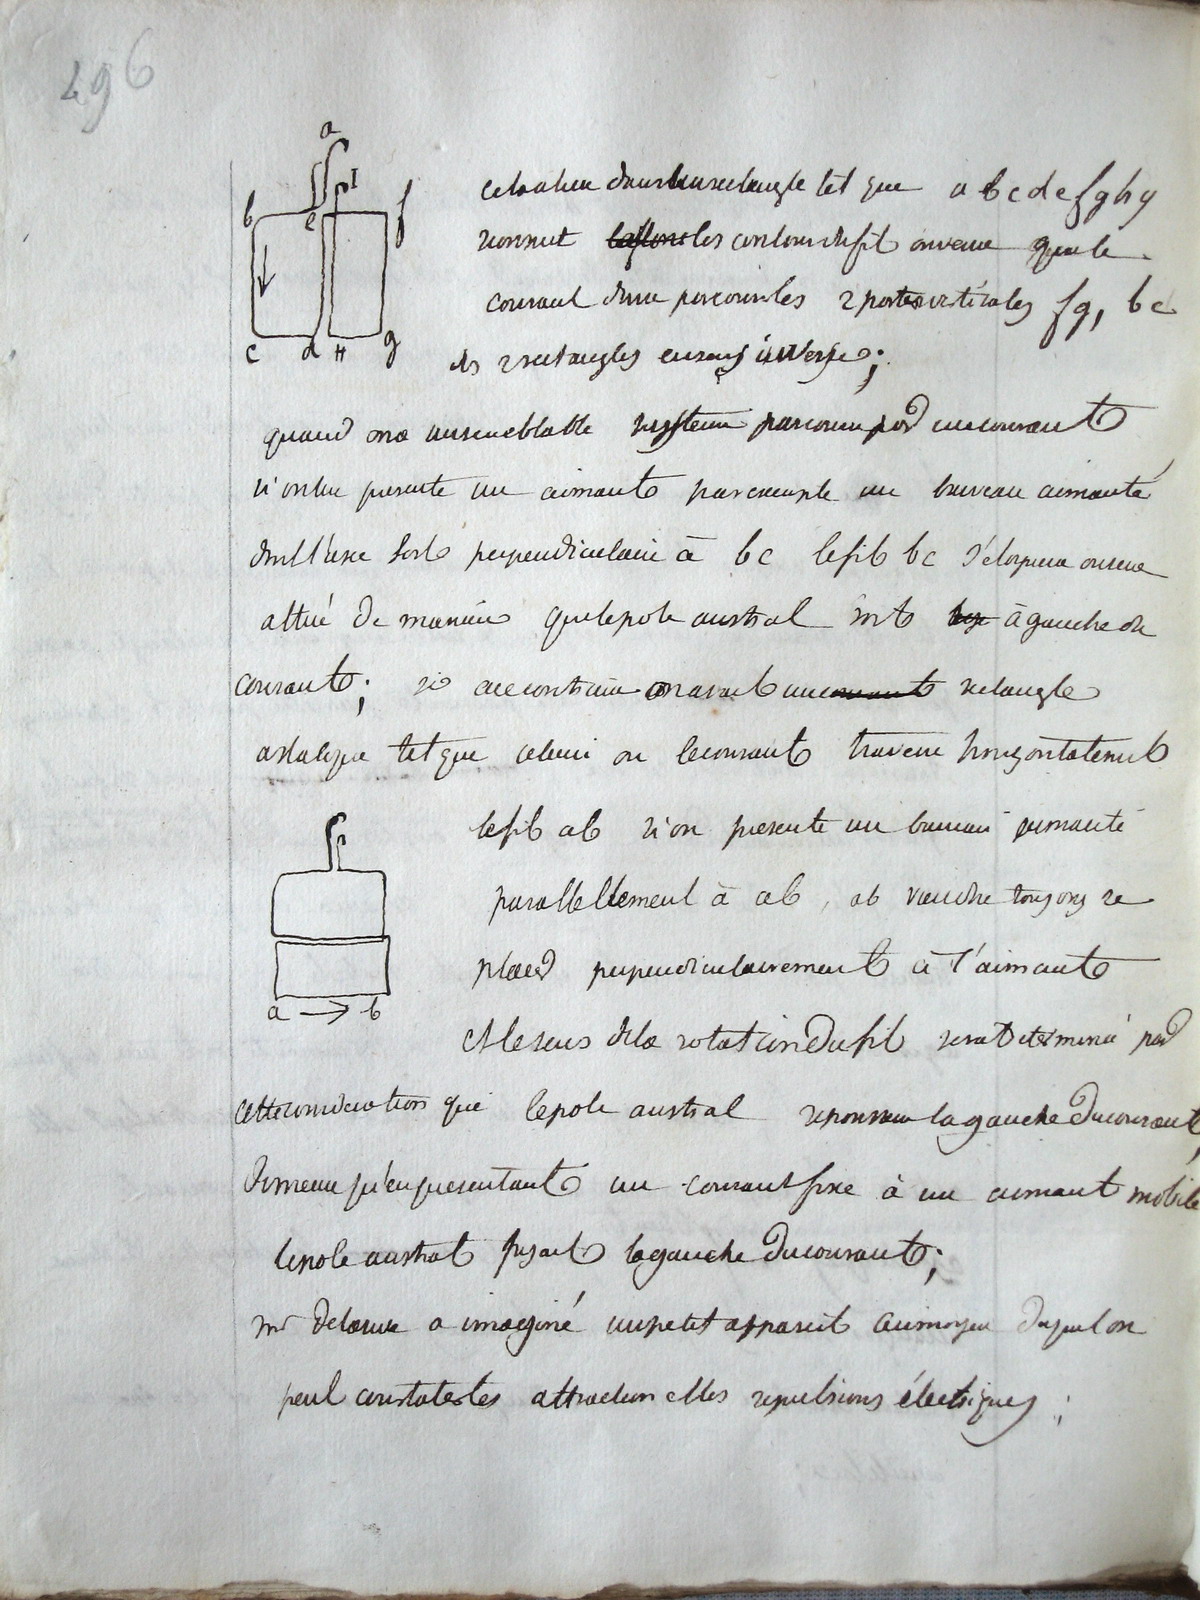 496
a
I
b e f
c d H g
cela a lieu dans un rectangle tel que a b c d e f g h y
si on suit les contours du fil on verra que le
courant d'une parcourir les 2 portes verticales fg, bc
des 2 rectangles en sens inverse;
quand on a un semblable système parcouru par un courant
si on lui presente un aimant par exemple un barreau aimanté
dont l'axe soit perpendiculaire à bc le fil bc s'éloignera ou sera
attiré de maniere que le pole austral soit à gauche du
courant; si au contraire on avait un rectangle
astatique tel que celui ou le courant traverse horizontalement
le fil ab si on presente un barreau aimanté
parallellement à ab, ab viendra toujours se
placer perpendiculairement à l'aimant
a → b
et le sens de la rotation du fil sera determiné par
cette consideration que le pole austral repoussera la gauche du courant,
de meme qu'en presentant un courant fixe à un aimant mobile
le pole austral fuyait la gauche du courant;
mr delarive a imaginé un petit appareil au moyen duquel on
peut constater les attraction et les repulsions électriques;